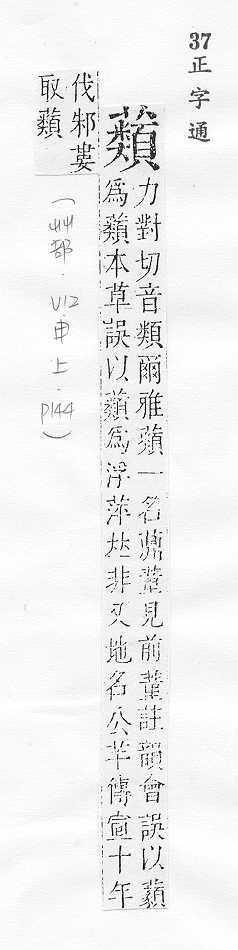 37
正字通
蘱
力對切音類爾雅蘱一名薡蕫見前蕫註韻會誤以蘱
為蘱本草誤以蘱為浮萍𠀤非又地名公羊傳宣十年
伐邾婁
取蘱
(艸部．V12．申上．P144)